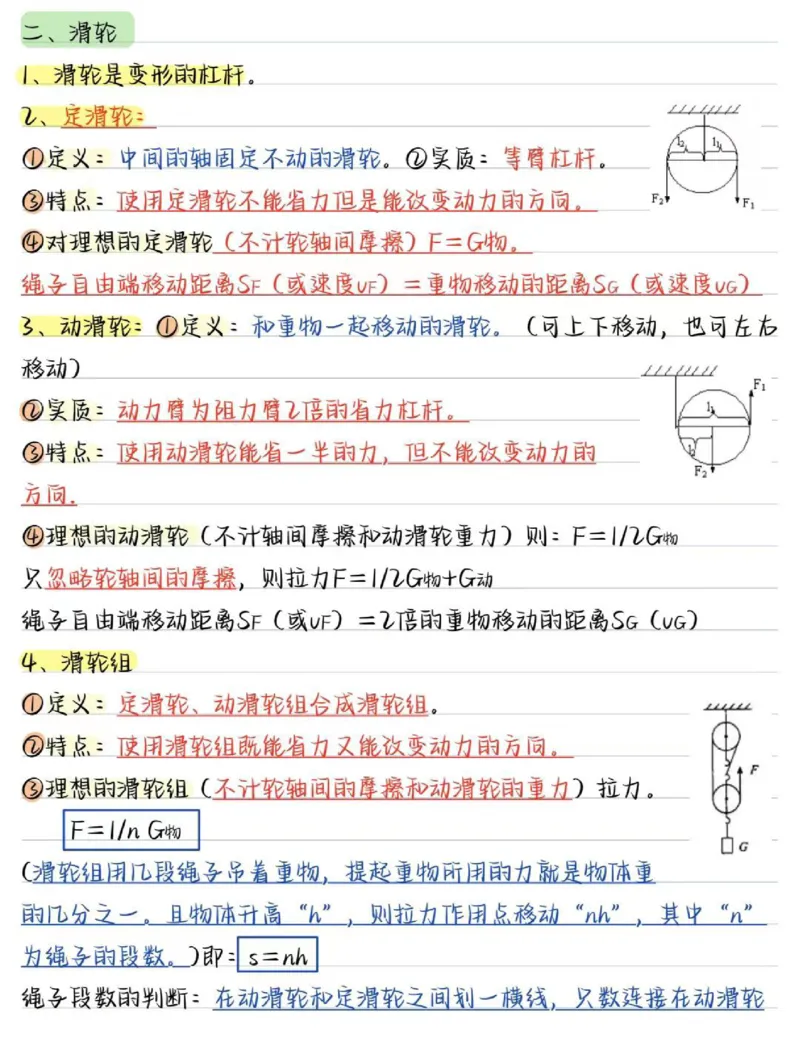 二、滑轮
1、滑轮是变形的杠杆。
2、定滑轮：
①定义：中间的轴固定不动的滑轮。②实质：等臂杠杆。
l₂ l₁
③特点：使用定滑轮不能省力但是能改变动力的方向。
F₂ F₁
④对理想的定滑轮（不计轮轴间摩擦）F＝G物。
绳子自由端移动距离SF（或速度vF）＝重物移动的距离SG（或速度vG）
3、动滑轮：①定义：和重物一起移动的滑轮。（可上下移动，也可左右
移动）
F₁
②实质：动力臂为阻力臂2倍的省力杠杆。
l₁
③特点：使用动滑轮能省一半的力，但不能改变动力的
l₂
F₂
方向.
④理想的动滑轮（不计轴间摩擦和动滑轮重力）则：F＝1/2G物
只忽略轮轴间的摩擦，则拉力F＝1/2G物+G动
绳子自由端移动距离SF（或vF）＝2倍的重物移动的距离SG（vG）
4、滑轮组
①定义：定滑轮、动滑轮组合成滑轮组。
②特点：使用滑轮组既能省力又能改变动力的方向。
F
③理想的滑轮组（不计轮轴间的摩擦和动滑轮的重力）拉力。
F＝1/n G物
G
(滑轮组用几段绳子吊着重物，提起重物所用的力就是物体重
的几分之一。且物体升高“h”，则拉力作用点移动“nh”，其中“n”
为绳子的段数。)即：s＝nh
绳子段数的判断：在动滑轮和定滑轮之间划一横线，只数连接在动滑轮